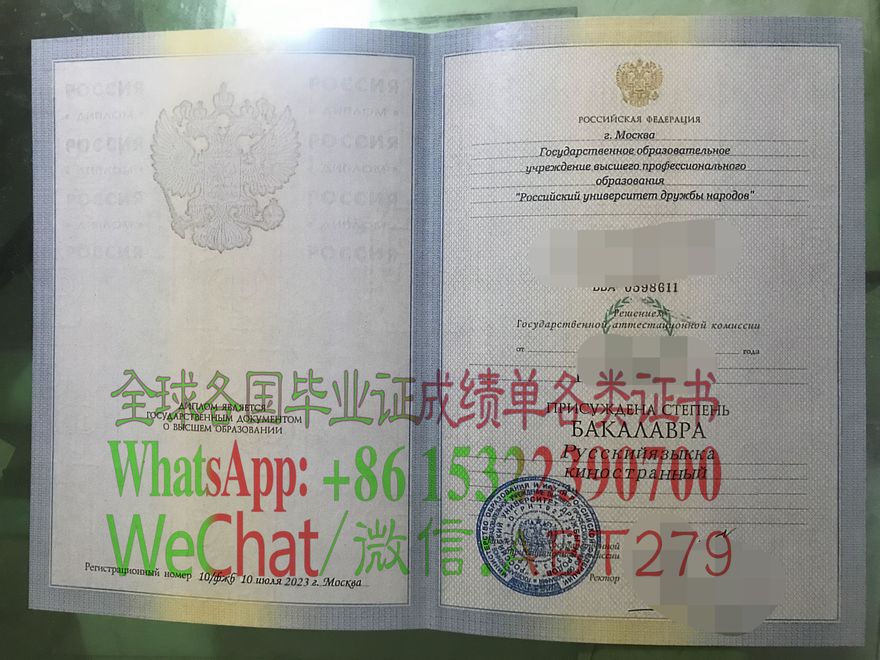 РОССИЯ
РОССИЯ
РОССИЯ
РОССИЯ
ДИПЛОМ ЯВЛЯЕТСЯ
ГОСУДАРСТВЕННЫМ ДОКУМЕНТОМ
О ВЫСШЕМ ОБРАЗОВАНИИ
Регистрационный номер 10/фжб 10 июля 2023 г. Москва
РОССИЙСКАЯ ФЕДЕРАЦИЯ
г. Москва
Государственное образовательное
учреждение высшего профессионального
образования
"Российский университет дружбы народов"
0598611
Решением
Государственной аттестационной комиссии
от года
ПРИСУЖДЕНА СТЕПЕНЬ
БАКАЛАВРА
Русскийязыкка
киностранный
Ректор
全球各国毕业证成绩单各类证书
WhatsApp: +86 15322390700
WeChat/微信: ART279